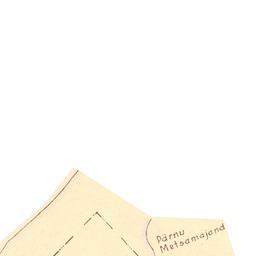 Pärnu
Metsamajand